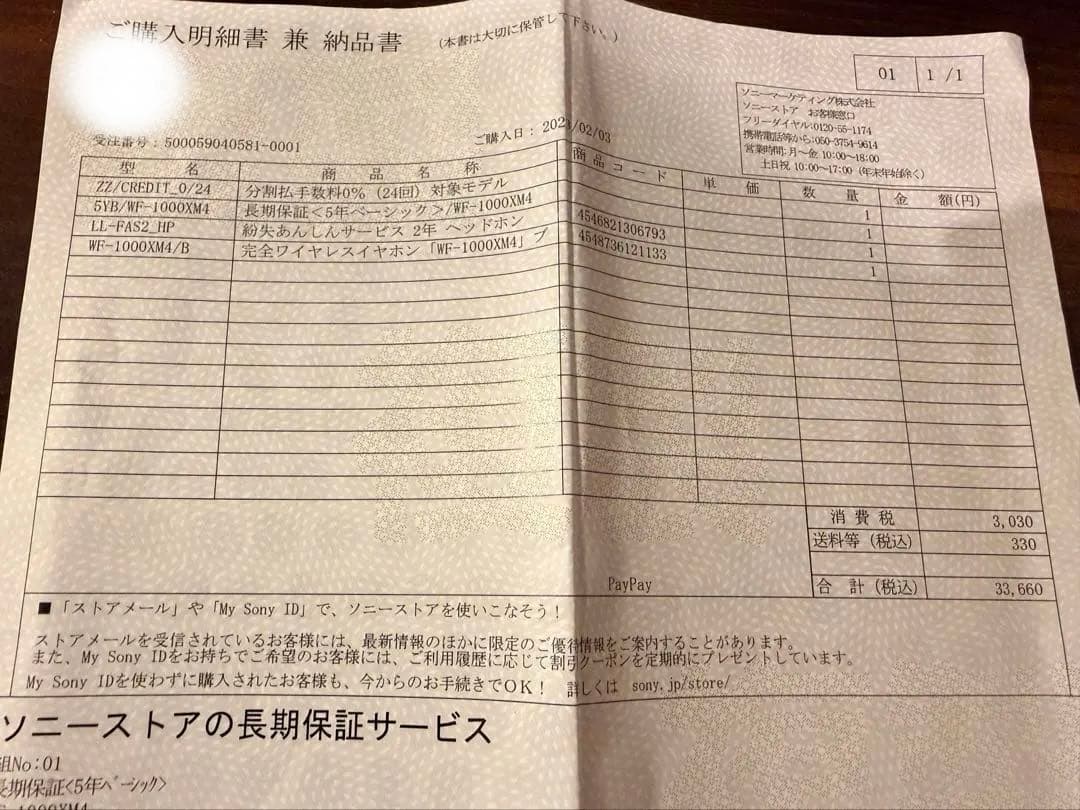 ご購入明細書 兼 納品書 (本書は大切に保管して下さい。)
01 1 /1
ソニーマーケティング株式会社
ソニーストア お客様窓口
フリーダイヤル:0120-55-1174
携帯電話等から:050-3754-9614
営業時間:月～金 10:00～18:00
土日祝 10:00～17:00 (年末年始除く)
受注番号 : 500059040581-0001
ご購入日 : 202 /02/03
型 名 商 品 名 称 商品コード 単 価 数 量 金 額(円)
ZZ/CREDIT_0/24 分割払手数料0% (24回) 対象モデル 1
5YB/WF-1000XM4 長期保証<5年ベーシック>/WF-1000XM4 1
LL-FAS2_HP 紛失あんしんサービス 2年 ヘッドホン 4546821306793 1
WF-1000XM4/B 完全ワイヤレスイヤホン「WF-1000XM4」ブ 4548736121133 1
消 費 税 3,030
送料等 (税込) 330
PayPay
合 計 (税込) 33,660
■「ストアメール」や「My Sony ID」で、ソニーストアを使いこなそう!
ストアメールを受信されているお客様には、最新情報のほかに限定のご優待情報をご案内することがあります。
また、My Sony IDをお持ちでご希望のお客様には、ご利用履歴に応じて割引クーポンを定期的にプレゼントしています。
My Sony IDを使わずに購入されたお客様も、今からのお手続きでOK! 詳しくは sony.jp/store/
ソニーストアの長期保証サービス
組No:01
長期保証<5年ベーシック>
WF-1000XM4